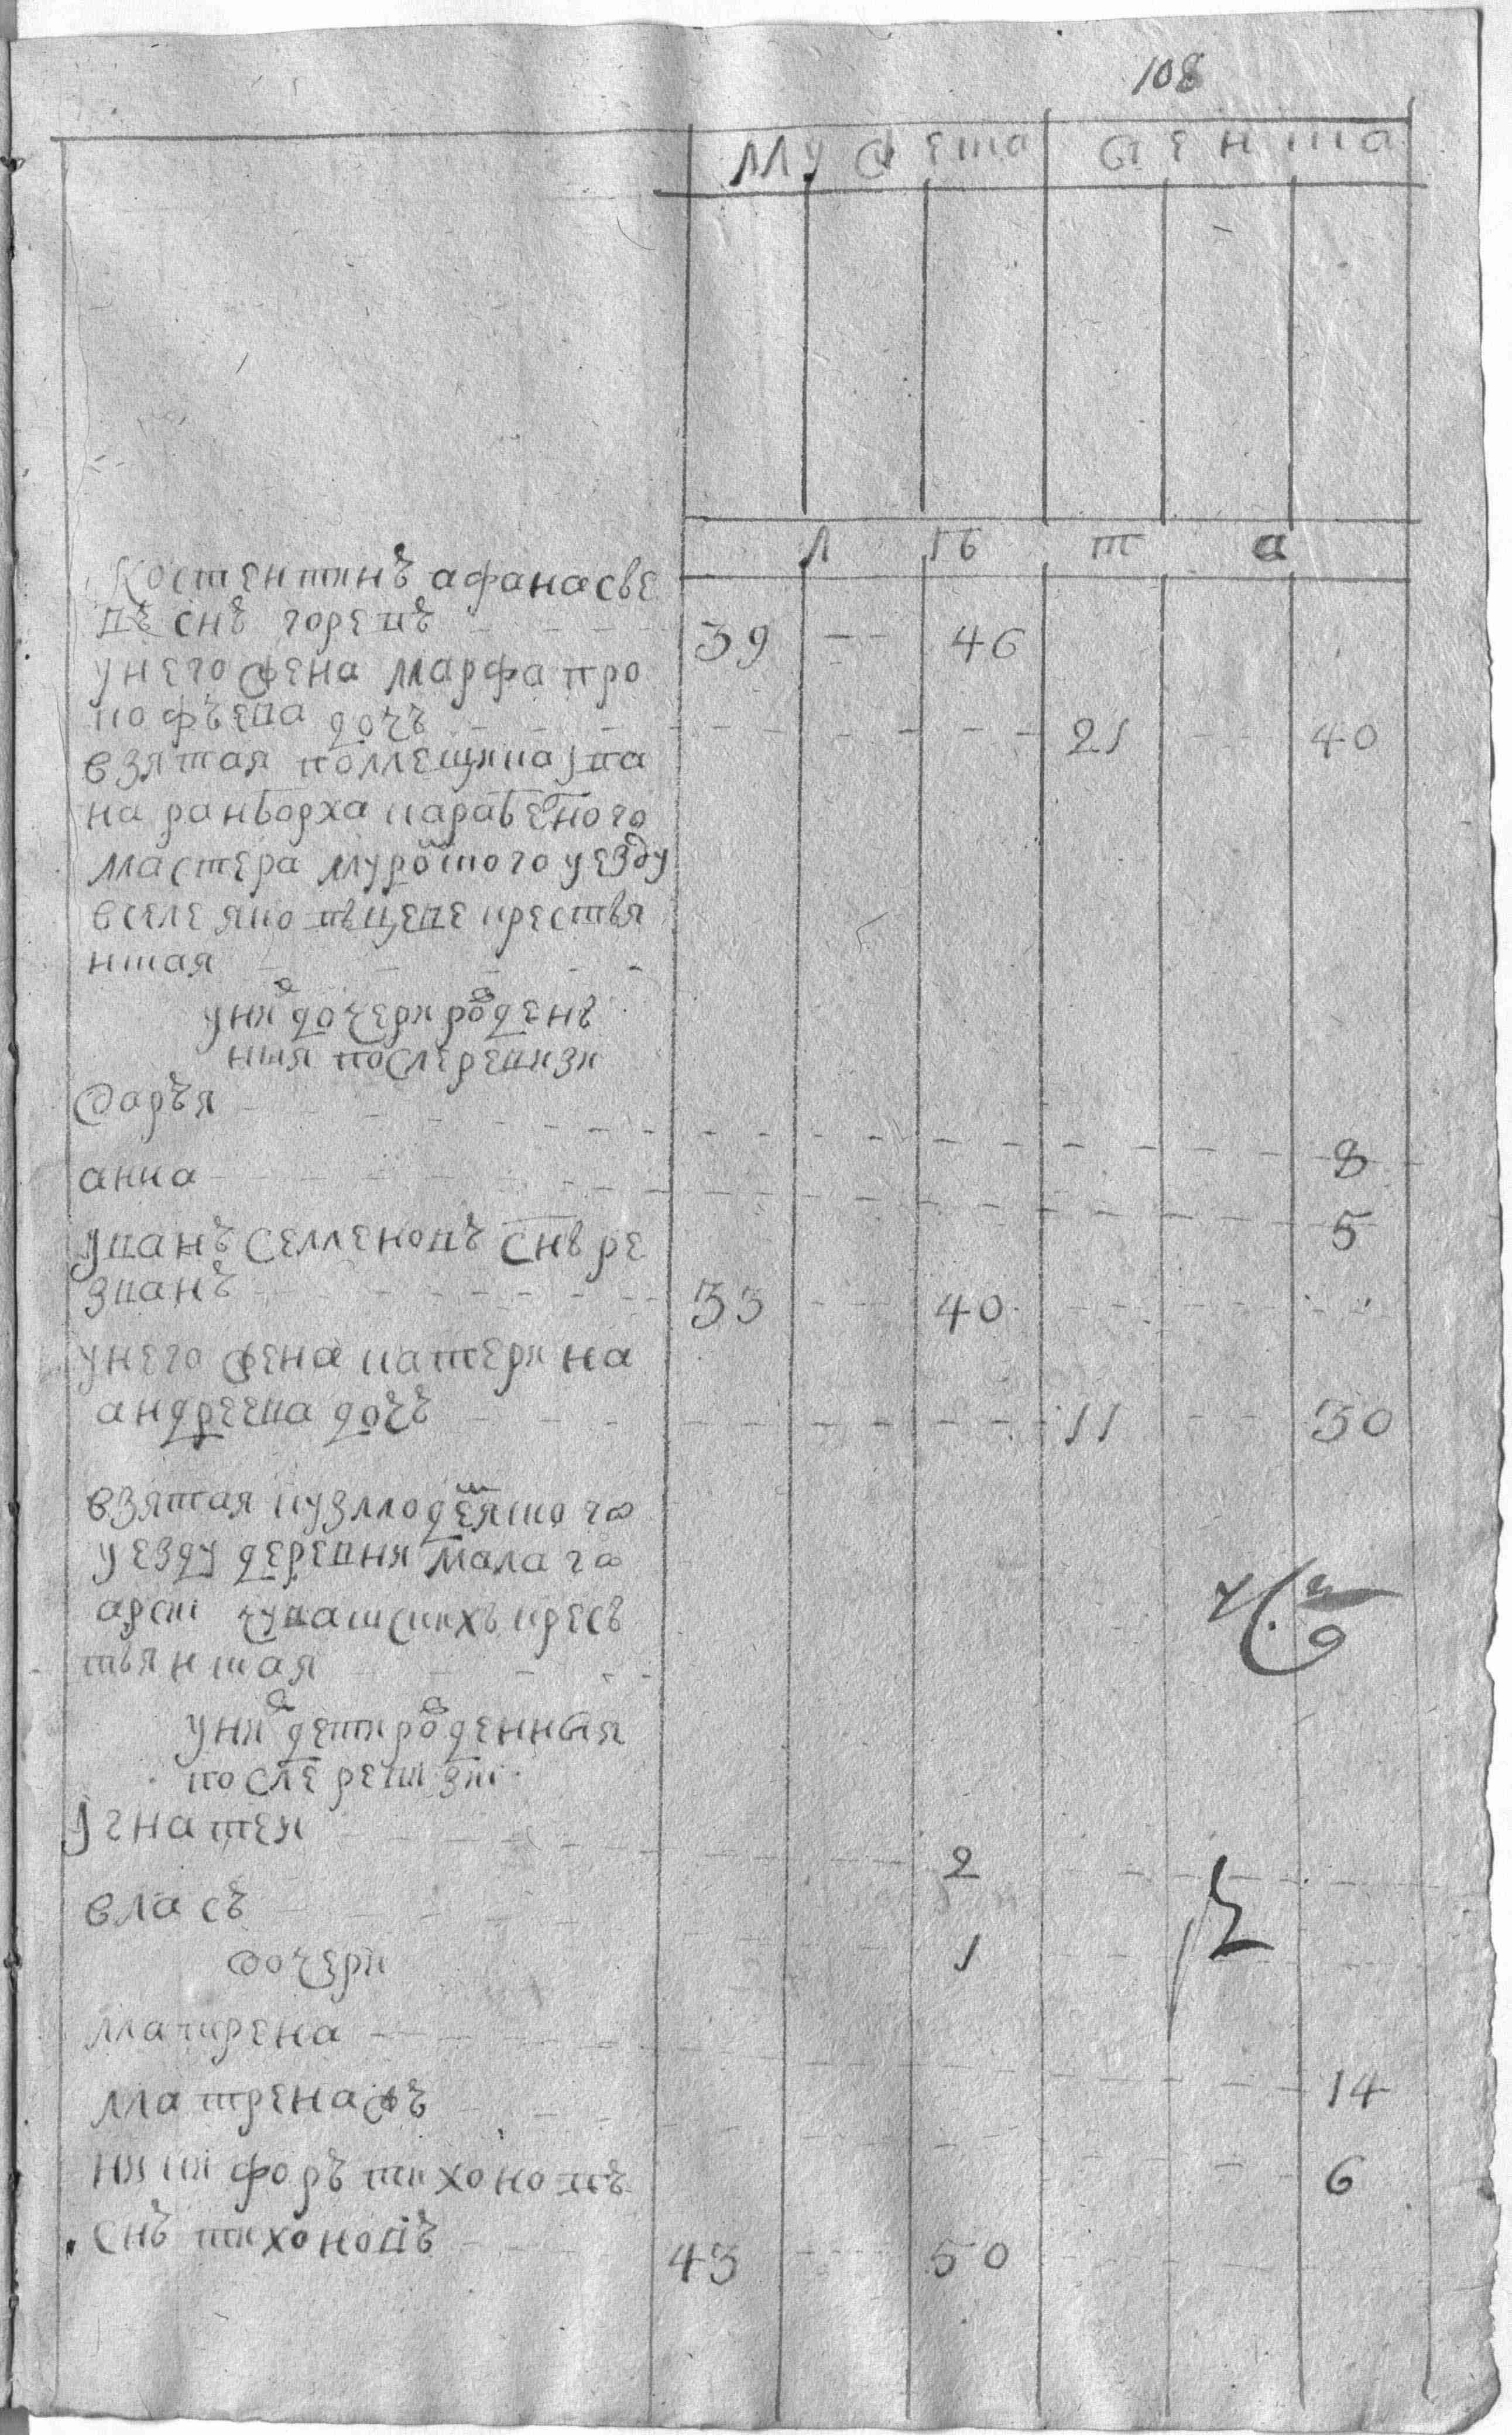 108
Мужеска женска
лѣта
Костентинъ афанасье
въ снъ горевъ 39 46
унего жена марфа про
кофьева дочъ 21 40
взятая помещика ива
на ранборха карабелного
мастера муромского уезду
вселе яко крестья
нская
уних дочери рожден
ныя послеревизи
Дарья 8
анна 5
иванъ семеновъ снъ ре
званъ 33 40
унего жена катерина
андреева дочъ 11 30
взятая кузмодемянского
уезду деревни мала го
чувашских кресть
тьянская
уних дети рожденныя
после ревизии
игнатеи 2
власъ 1
дочери
матрена 14
матрена жъ 6
никифоръ тихоновъ
снъ тихоновъ 43 50